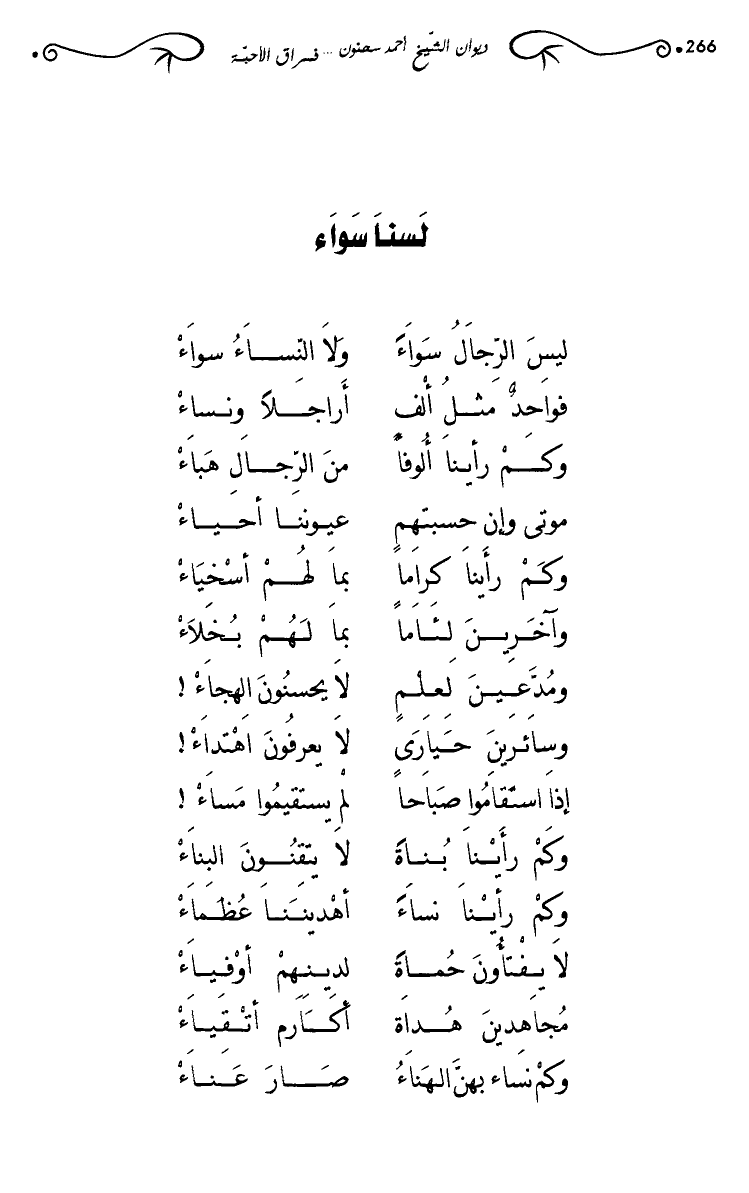 266 ديوان الشّيخ أحمد سحنون ... فراق الأحبّة
لَسناَ سَواَء
ليسَ الرّجالُ سَواَءً ولاَ النّساءُ سواَءْ
فواَحدٌ مثلُ ألْف أَراجلاً ونساءْ
وكمْ رأيناَ أُلوفاً منَ الرّجالِ هَباَءْ
موتى وإن حسبتهم عيوننا أحياءْ
وكَمْ رأَيناَ كراَماً بماَ لهُمْ أسْخيَاءْ
وآخَرِينَ لئَاماً بماَ لَهُمْ بُخلاَءْ
ومُدَّعينَ لَعلْمٍ لاَ يحسنُونَ الهجاءْ !
وسائرينَ حَيارَى لاَ يعرفُونَ اهْتداءْ !
إذاَ استَقامُوا صَباَحاً لمْ يستقيمُوا مَساءْ !
وكَمْ رأَيْناَ بُناةً لاَ يتقنُونَ البناءْ
وكمْ رأيْناَ نساءً أهْدينَنا عُظَماءْ
لاَ يفْتأُونَ حُماةً لدينهمْ أوْفياَءْ
مُجاهدينَ هُداة أكَارم أتْقياَءْ
وكمْ نسَاء بهنَّ الهَناَءُ صارَ عَناءْ